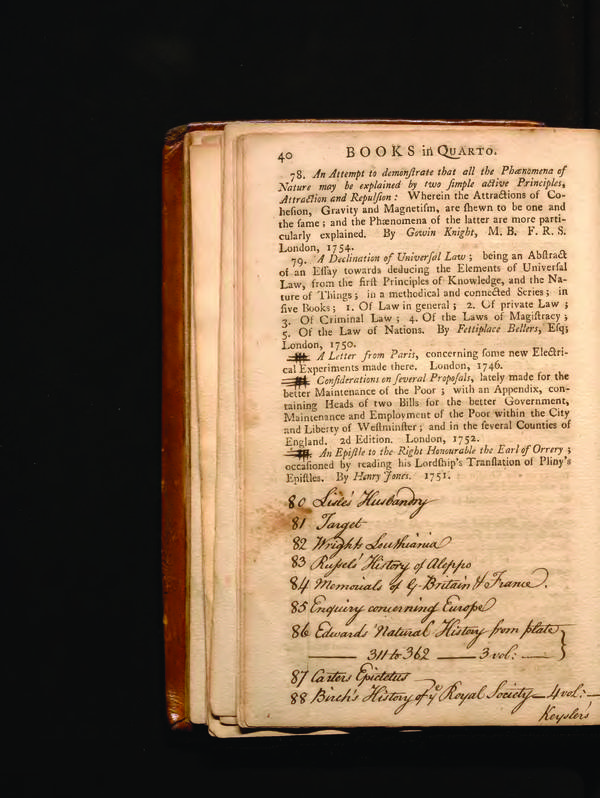 40 BOOKS in QUARTO.
78. An Attempt to demonſtrate that all the Phænomena of
Nature may be explained by two ſimple active Principles,
Attraction and Repulſion : Wherein the Attractions of Co-
heſion, Gravity and Magnetiſm, are ſhewn to be one and
the ſame ; and the Phænomena of the latter are more parti-
cularly explained. By Gowin Knight, M. B. F. R. S.
London, 1754.
79. A Declination of Univerſal Law ; being an Abſtract
of an Eſſay towards deducing the Elements of Univerſal
Law, from the firſt Principles of Knowledge, and the Na-
ture of Things ; in a methodical and connected Series ; in
five Books ; 1. Of Law in general ; 2. Of private Law ;
3. Of Criminal Law ; 4. Of the Laws of Magiſtracy ;
5. Of the Law of Nations. By Fettiplace Bellers, Eſq;
London, 1750.
A Letter from Paris, concerning ſome new Electri-
cal Experiments made there. London, 1746.
Conſiderations on ſeveral Propoſals, lately made for the
better Maintenance of the Poor ; with an Appendix, con-
taining Heads of two Bills for the better Government,
Maintenance and Employment of the Poor within the City
and Liberty of Weſtminſter ; and in the ſeveral Counties of
England. 2d Edition. London, 1752.
An Epiſtle to the Right Honourable the Earl of Orrery ;
occaſioned by reading his Lordſhip's Tranſlation of Pliny's
Epiſtles. By Henry Jones. 1751.
80 Lisle's Husbandry
81 Target
82 Wrights Louthiania
83 Russels' History of Aleppo
84 Memorials of G Britain & France.
85 Enquiry concerning Europe
86 Edwards' Natural History from plate
311 to 362 — 3 vol: —
87 Carters Epictetus
88 Birch's History of yᵉ Royal Society — 4 vol: —
Keysler's